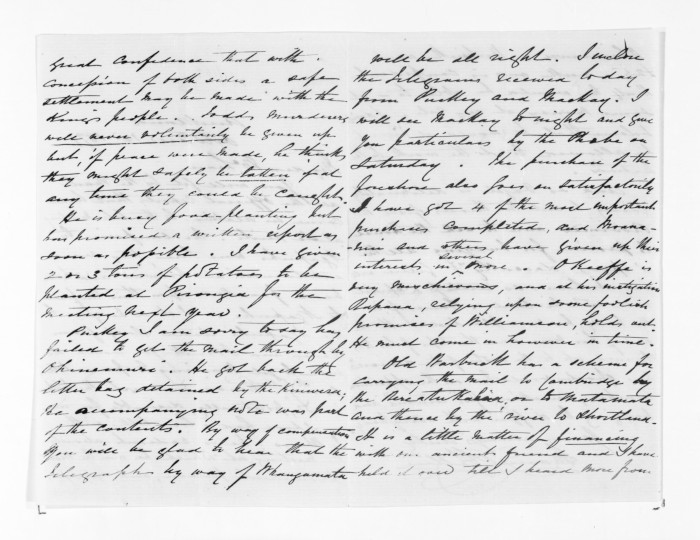 great confidence that with
concession of both sides a safe
settlement may be made with the
King's people. Todds murderers
will never voluntarily be given up
but, if peace were made, he thinks
they might safely be taken if at
any time they could be caught.
He is busy food-planting but
has promised a written report as
soon as possible. I have given
2 or 3 tons of potatoes to be
planted at Pirongia for the
meeting next year.
Puckey I am sorry to say has
failed to get the mail through by
Ohinemuri. He got back the
letter bag detained by the
The accompanying note was part
of the contents. By way of compensation
you will be glad to hear that the
Telegraph by way of Whangamata
will be all right. I inclose
the telegrams received to day
from Puckey and Mackay. I
will see Mackay to night and give
you particulars by the Phoebe on
Saturday. The purchase of the
foreshore also goes on satisfactorily
I have got 4 of the most important
purchases completed, and
and others have given up their
interests in several more. O'Keeffe is
very mischievous, and at his instigation
Rapana, relying upon some foolish
promises of Williamson, holds out.
He must come in however in time.
Old Warbrick has a scheme for
carrying the mail to Cambridge by
the on to Matamata
and thence by the river to Shortland.
It is a little matter of financing
with our ancient friend and I have
held it over till I heard more from